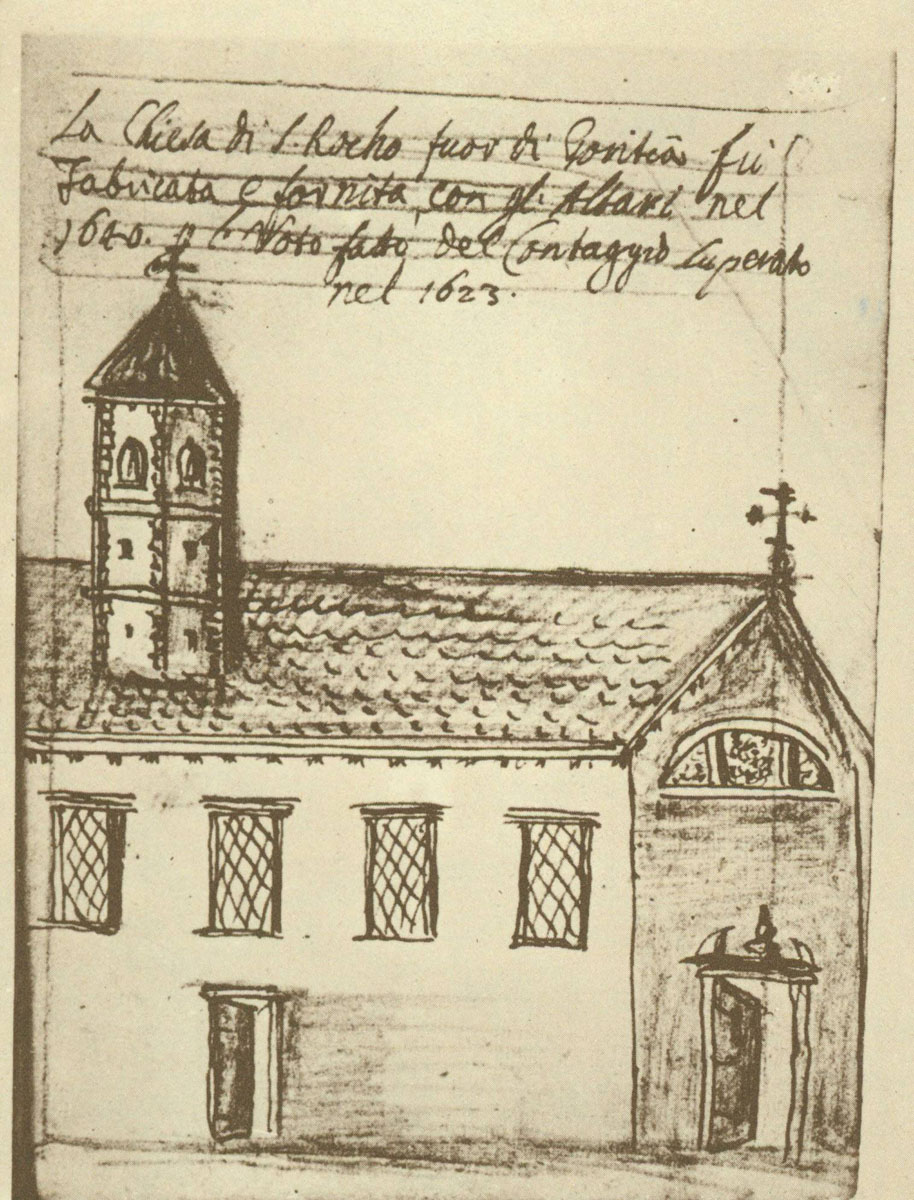 La Chiesa di S. Rocho fuor di Goritia fù
Fabricata e fornita con gl. Altari nel
1640. Voto fatto del Contaggio superato
nel 1623.